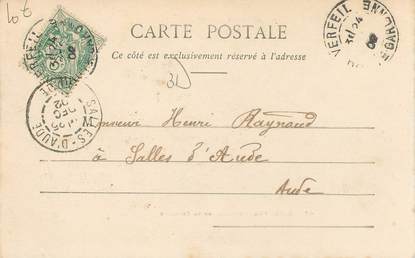 10 €
CARTE POSTALE
Ce côté est exclusivement réservé à l'adresse
VERFEIL
24
02
Hte GARONNE
VERFEIL
24
31
SALLES-D'AUDE
25
DEC
02
Monsieur Henri Raynaud
à Salles d'Aude
Aude